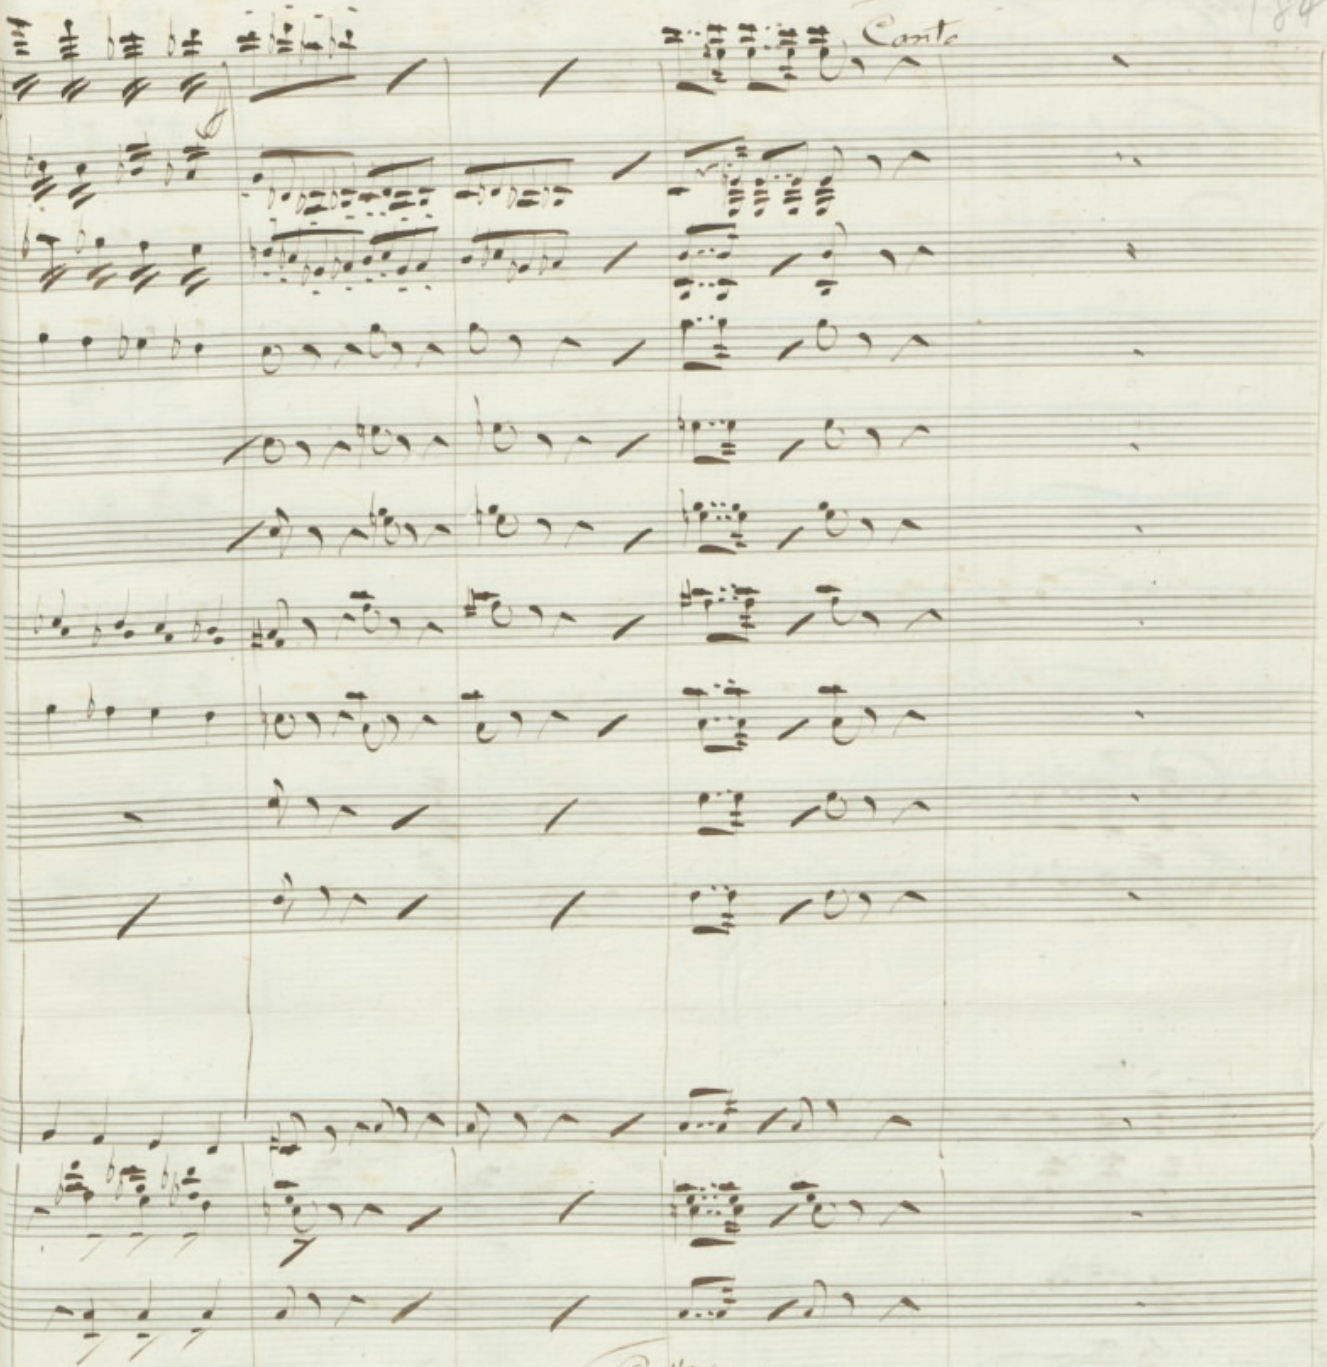 184
Canto